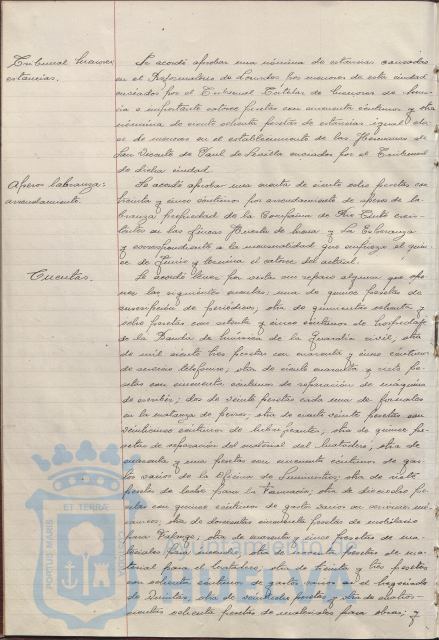 Tribunal menores
estancias.
Se acordó aprobar una nómina de estancias causadas
en el Reformatorio de Lourdes por menores de esta ciudad
enviados por el Tribunal Tutelar de menores de Huel-
va e importante catorce pesetas con cuarenta céntimos y otra
nómina de ciento ochenta pesetas de estancias igual cla-
se de menores en el establecimiento de las Hermanas de
San Vicente de Paul de Sevilla enviados por el Tribunal
de dicha ciudad.
Aperos labranza:
arrendamiento.
Se acordó aprobar una cuenta de ciento ocho pesetas con
treinta y cinco céntimos por arrendamiento de aperos de la-
branza propiedad de la Compañía de Rio Tinto exis-
tentes en las fincas Huerta de and y La Esperanza
y correspondiente a la mensualidad que empieza el quin-
ce de Junio y termina el catorce del actual.
Cuentas.
Se acordó tener por vista sin reparo alguno que opo-
ner las siguientes cuentas: una de quince pesetas de
suscripción de periódicos; otra de quinientas ochenta y
ocho pesetas con setenta y cinco céntimos de hospedaje
de la Banda de música de la Guardia civil; otra
de mil ciento tres pesetas con cuarenta y cinco céntimos
de servicio telefónico; otra de ciento cuarenta y siete pe-
setas con cincuenta céntimos de reparación de máquina
de escribir; dos de veinte pesetas cada una de jornales
en la matanza de perros; otra de ciento veinte pesetas con
veinticinco céntimos de lubrificantes; otra de quince pe-
setas de reparación del material del Matadero; otra de
cuarenta y una pesetas con cincuenta céntimos de gas-
tos varios de la Oficina de Suministros; otra de siete
pesetas de para la Farmacia; otra de dieciocho pe-
setas con quince céntimos de gastos varios en servicios me-
cánicos; otra de doscientas cincuenta pesetas de mobiliario
para; otra de cuarenta y cinco pesetas de ma-
teriales para; otra de pesetas de ma-
terial para el Matadero; otra de treinta y tres pesetas
con ochenta céntimos de gastos varios en el Negociado
de Quintas; otra de veintidos pesetas y otra de cuatro-
cientas ochenta pesetas de materiales para obras; y
PORTUS MARIS
ET TERRA
CUSTODIA
Ayuntamiento de
HUELVA